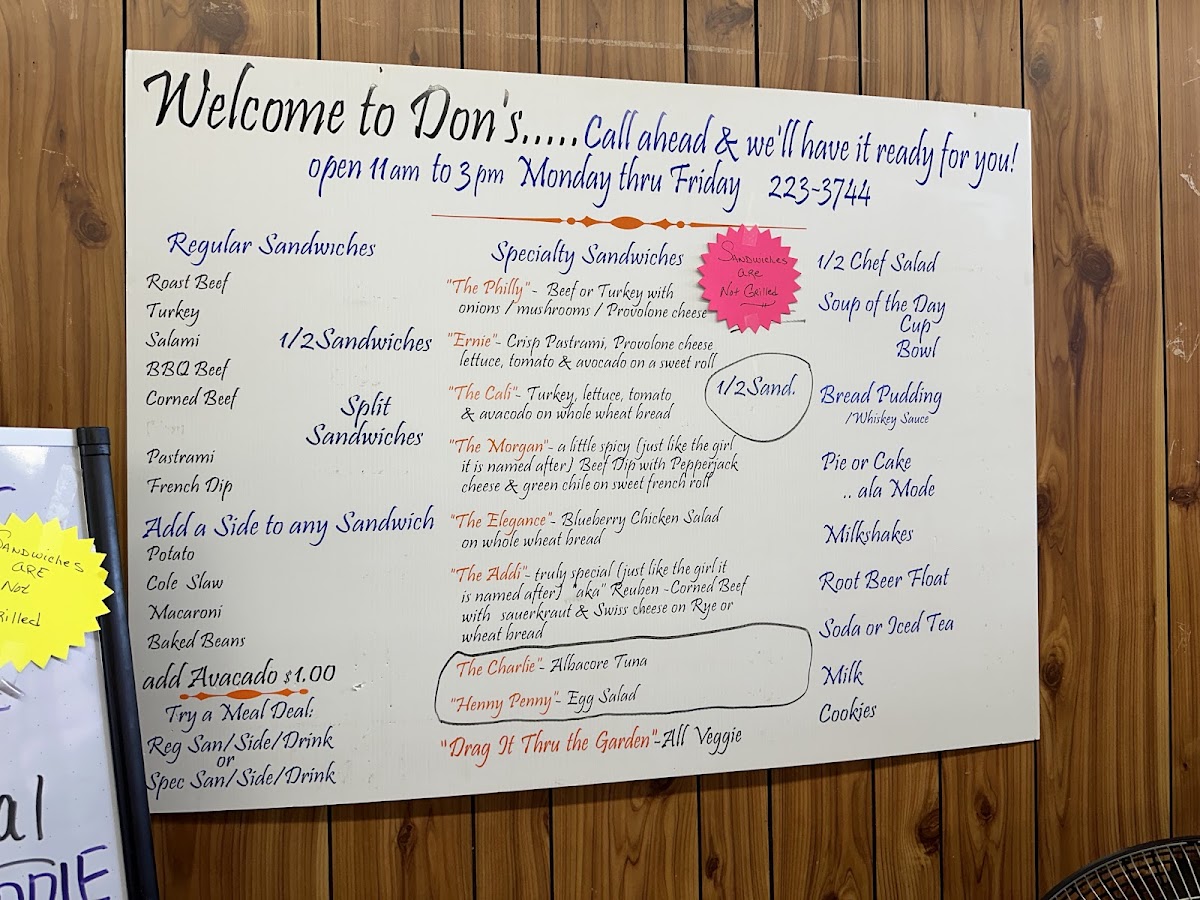 Welcome to Don's.....Call ahead & we'll have it ready for you!
open 11am to 3pm Monday thru Friday 223-3744
Regular Sandwiches
Roast Beef
Turkey
Salami
BBQ Beef
Corned Beef
Pastrami
French Dip
1/2 Sandwiches
Split
Sandwiches
Add a Side to any Sandwich
Potato
Cole Slaw
Macaroni
Baked Beans
add Avacado $1.00
Try a Meal Deal:
Reg San/Side/Drink
or
Spec San/Side/Drink
Specialty Sandwiches
"The Philly"- Beef or Turkey with
onions / mushrooms / Provolone cheese
"Ernie"- Crisp Pastrami, Provolone cheese
lettuce, tomato & avocado on a sweet roll
"The Cali"- Turkey, lettuce, tomato
& avacodo on whole wheat bread
"The Morgan"- a little spicy (just like the girl
it is named after) Beef Dip with Pepperjack
cheese & green chile on sweet french roll
"The Elegance"- Blueberry Chicken Salad
on whole wheat bread
"The Addi"- truly special (just like the girl it
is named after) "aka" Reuben -Corned Beef
with sauerkraut & Swiss cheese on Rye or
wheat bread
"The Charlie"- Albacore Tuna
"Henny Penny"- Egg Salad
"Drag It Thru the Garden"-All Veggie
Sandwiches
are
Not Grilled
1/2 Sand.
1/2 Chef Salad
Soup of the Day
Cup
Bowl
Bread Pudding
/Whiskey Sauce
Pie or Cake
.. ala Mode
Milkshakes
Root Beer Float
Soda or Iced Tea
Milk
Cookies
Sandwiches
are
Not
rilled
al